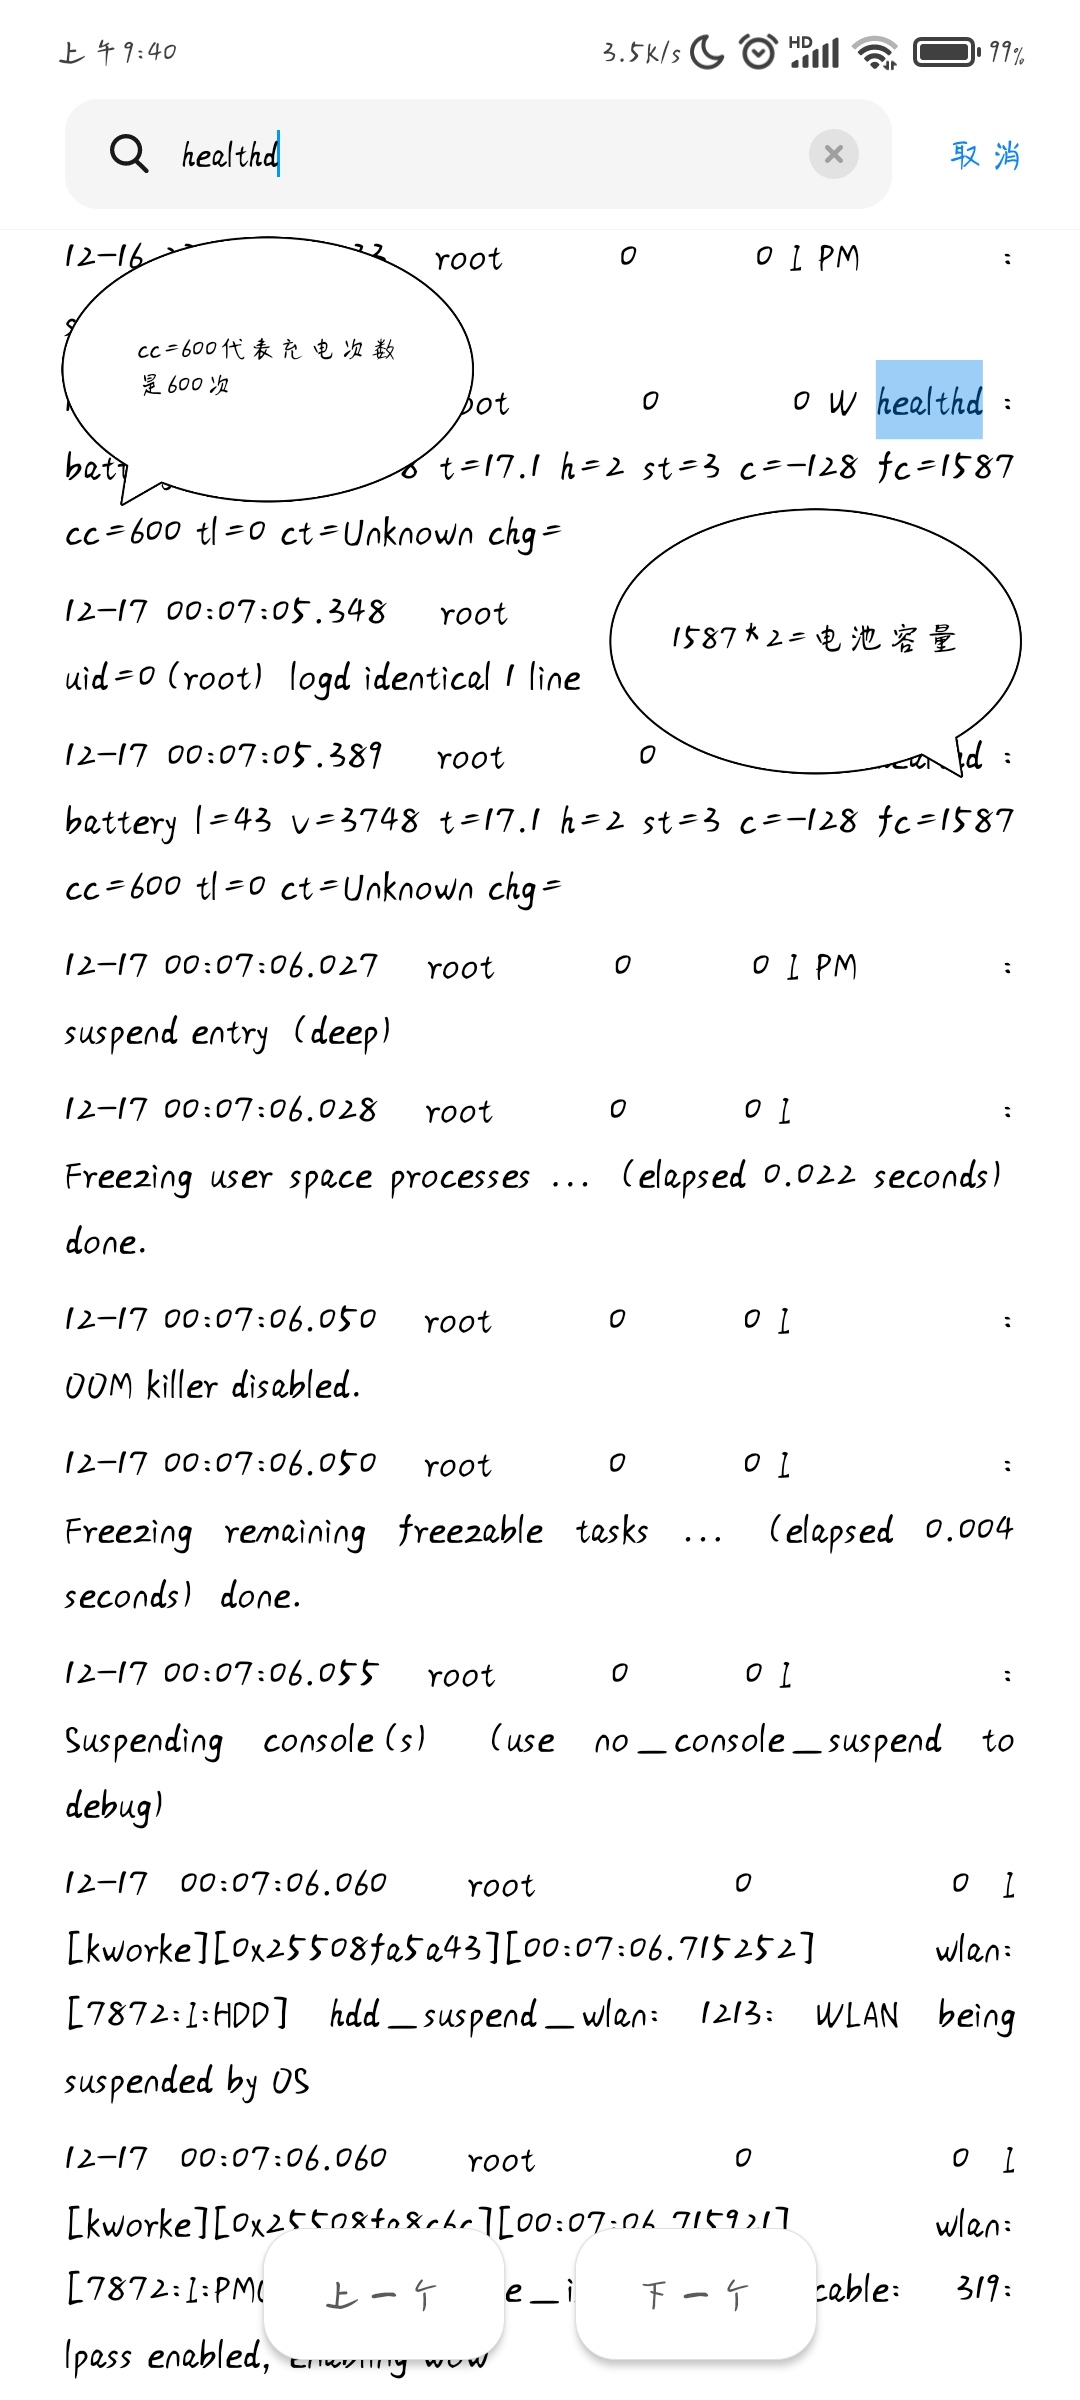 上午9:40 3.5K/s HD 99%
healthd 取消
12-16 root 0 0 I PM :
cc=600代表充电次数
是600次
0 0 W healthd :
t=17.1 h=2 st=3 c=-128 fc=1587
cc=600 tl=0 ct=Unknown chg=
12-17 00:07:05.348 root
1587*2=电池容量
uid=0(root) logd identical 1 line
12-17 00:07:05.389 root 0 :
battery l=43 v=3748 t=17.1 h=2 st=3 c=-128 fc=1587
cc=600 tl=0 ct=Unknown chg=
12-17 00:07:06.027 root 0 0 I PM :
suspend entry (deep)
12-17 00:07:06.028 root 0 0 I :
Freezing user space processes ... (elapsed 0.022 seconds)
done.
12-17 00:07:06.050 root 0 0 I :
OOM killer disabled.
12-17 00:07:06.050 root 0 0 I :
Freezing remaining freezable tasks ... (elapsed 0.004
seconds) done.
12-17 00:07:06.055 root 0 0 I :
Suspending console(s) (use no_console_suspend to
debug)
12-17 00:07:06.060 root 0 0 I
[kworke][0x25508fa5a43][00:07:06.715252] wlan:
[7872:I:HDD] hdd_suspend_wlan: 1213: WLAN being
suspended by OS
12-17 00:07:06.060 root 0 0 I
[00:07:06.715921] wlan:
319:
上一个 下一个
lpass enabled, enabling wow